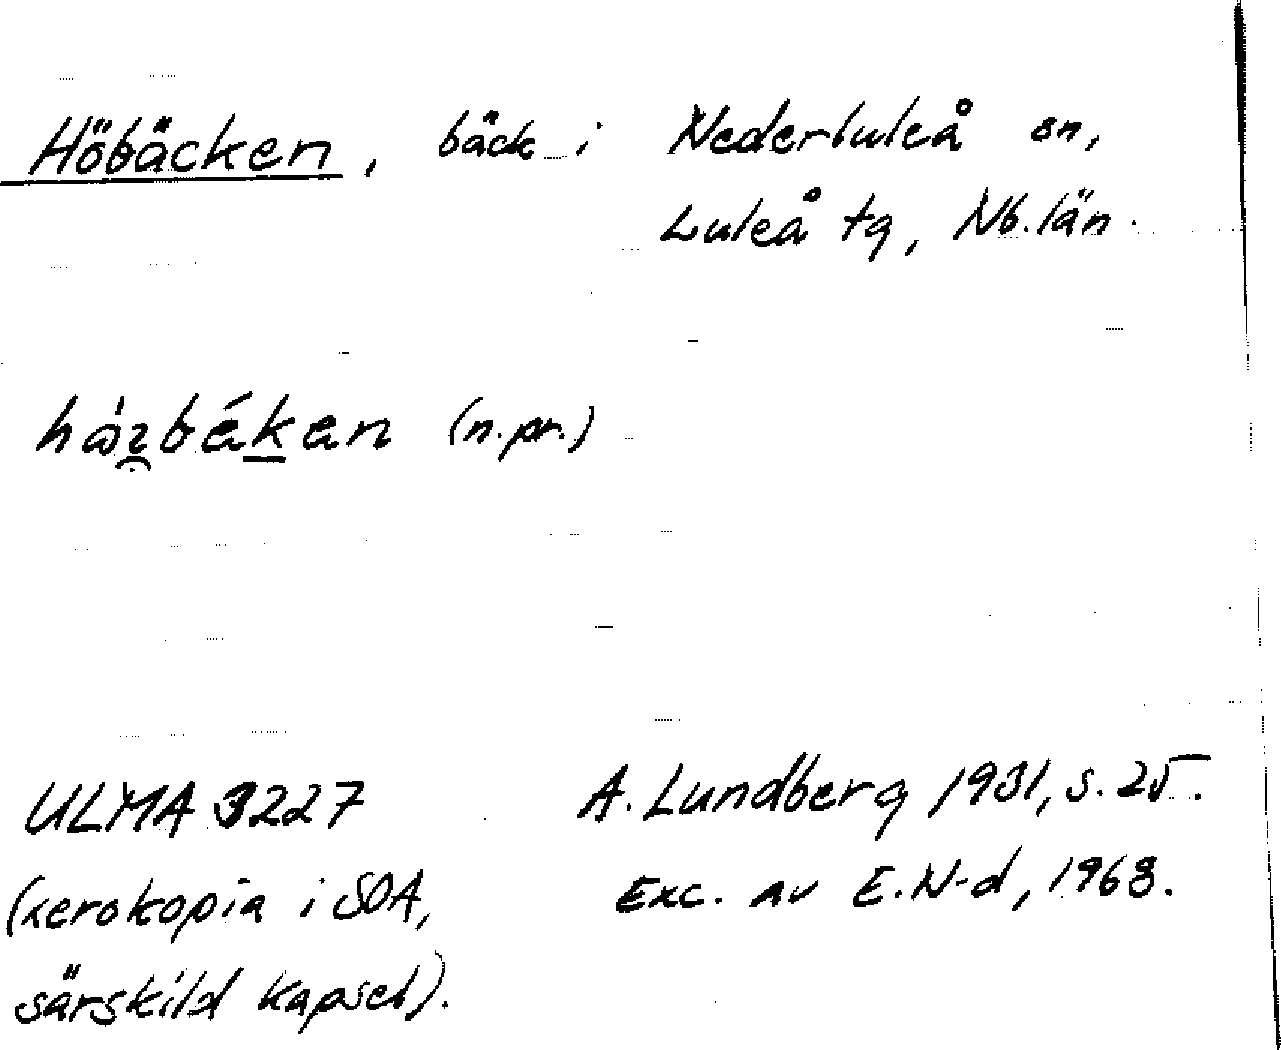 Höbäcken, bäck i Nederluleå sn,
Luleå tg, Nb. län.
(n.pr.)
ULMA 3227
(xerokopia i SOA,
särskild kapsel).
A. Lundberg 1931, s. 25.
Exc. av E. N-d, 1968.